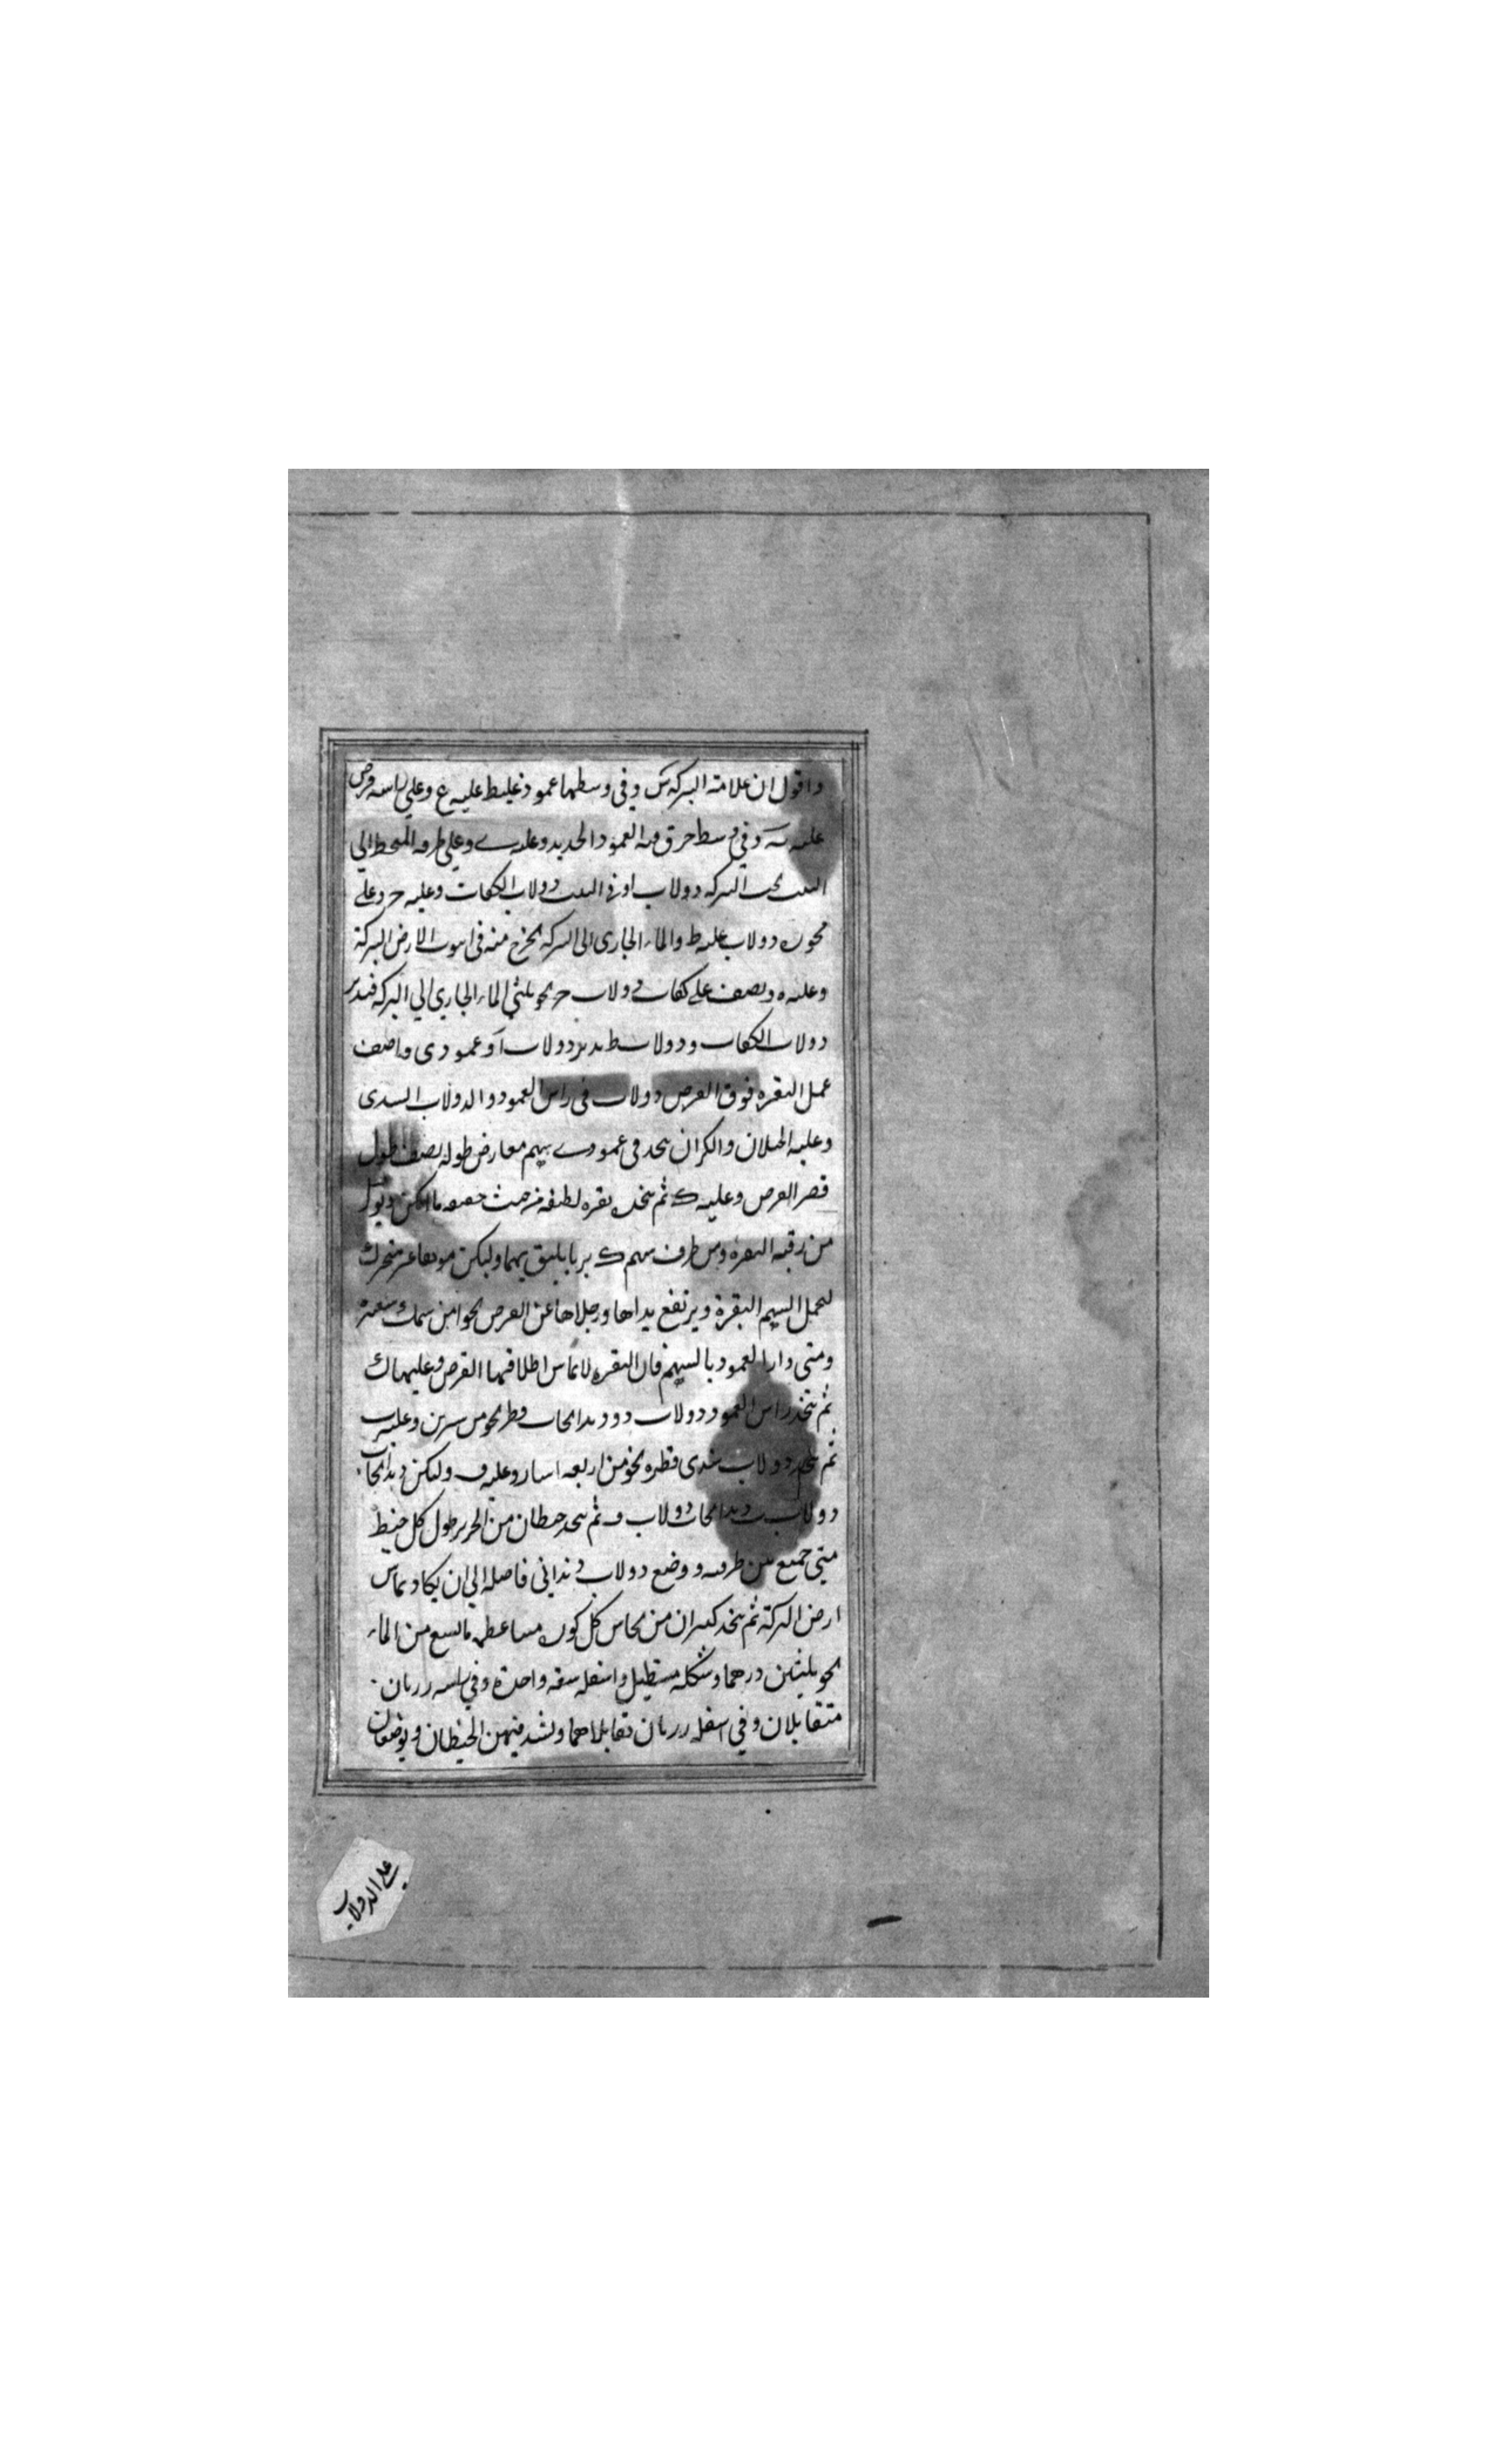 واقول ان علامة البركه س وفي وسطها عمود غليظ عليه ع وعلي راسه قرص
عليه سه وفي وسط خرق فيه العمود الحديد وعليه ى وعلي طرفه المنحط الي
البيت تحت البركه دولاب او في البيت دولاب الكفات وعليه ح وعلى
محوره دولاب عليه ط والماء الجارى الى البركه يخرج منه في الارض البركة
وعليه ه ونصف على كفات دولاب ح نحو ثلثي الماء الجاري الي البركه فيدير
دولاب الكفات ودولاب ط يدير دولاب آ وعمود ى واصف
عمل البقره فوق القرص دولاب في راس العمود والدولاب السدى
وعليه الحبلان والكزان يتخذ في عمود ى سهم معارض طوله نصف طول
قصر القرص وعليه ك ثم يتخذ بقره لطيفه من حيث خفيفه ما امكن ويوثق
من رقبه البقره وبين طرف سهم ك بربا يليق بهما وليكن موثقا غير متحرك
ليحمل السهم البقرة ويرتفع يداها ورجلاها عن القرص نحوا من سمك شعيرة
ومتى دار العمود بالسهم فان البقره لا تماس اظلافها القرص وعليها ك
ثم يتخذ راس العمود دولاب ذو دندانجات قطره نحو من شبرين وعليه ب
ثم يتخذ دولاب سدى قطره نحو من اربعه اشبار وعليه ف وليكن دندانجات
دولاب ب دندانجات دولاب ف ثم يتخذ خيطان من الحرير طول كل خيط
متى جمع بين طرفيه ووضع دولاب دنداني فاصله الي ان يكاد يماس
ارض البركة ثم يتخذ كيزان من نحاس كل كوز مساعطيه ما يسع من الماء
نحو ثلثين درهما وشكله مستطيل واسفله سعه واحدة وفي راسه رزتان
متقابلان وفي اسفله رزتان تقابلاهما ويشد فيهن الخيطان ويوضعان
على الدولاب